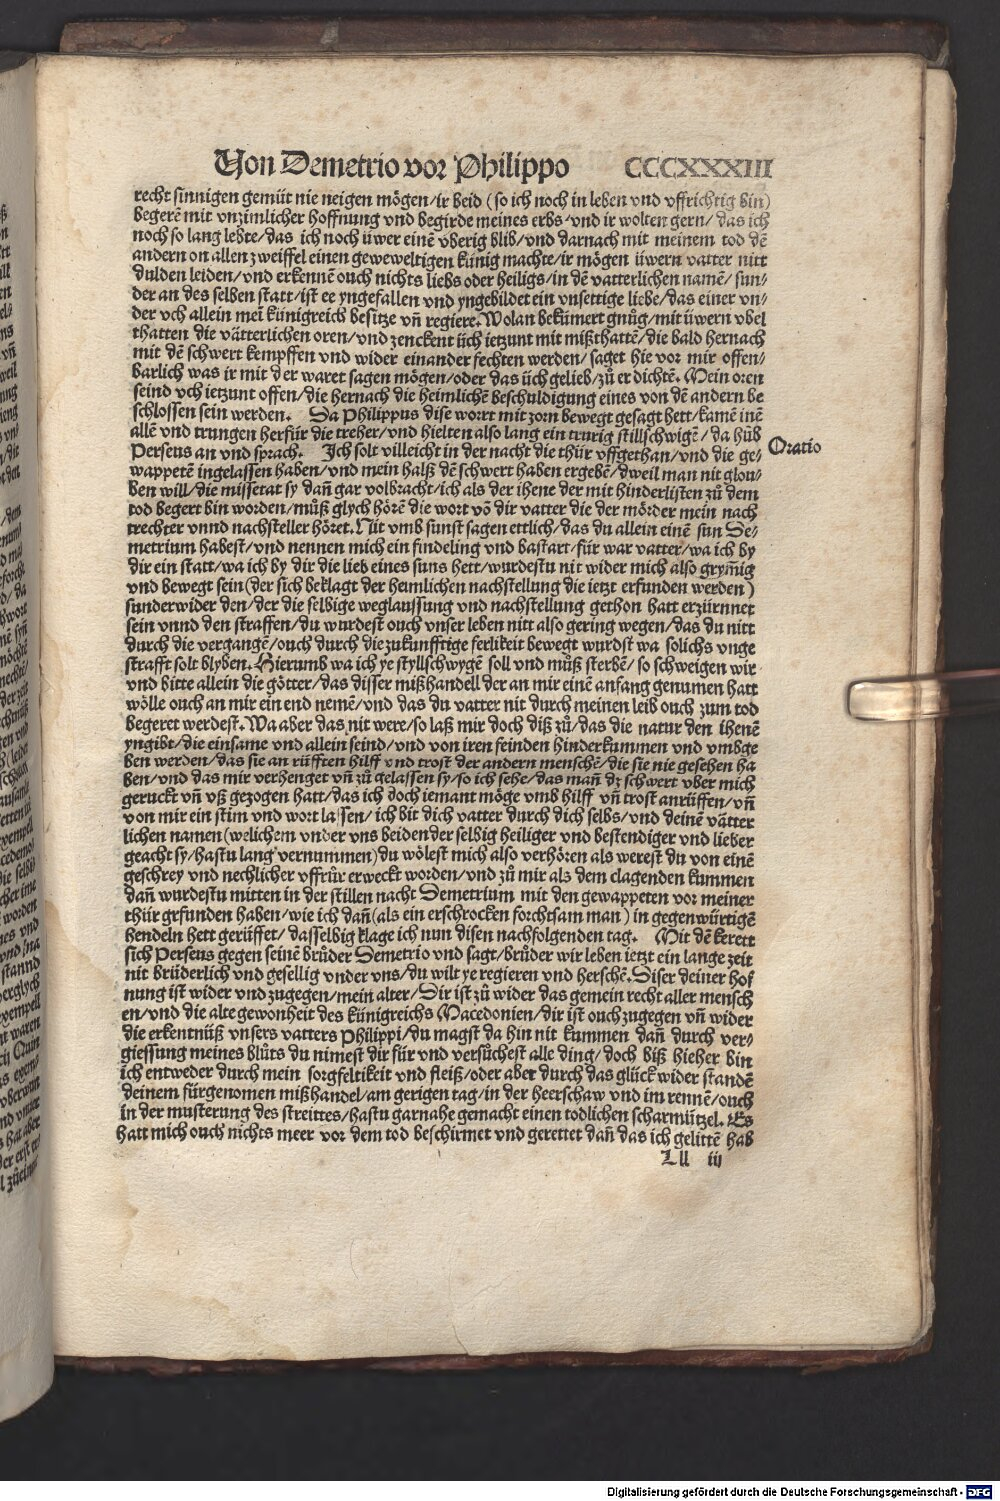 Von Demetrio vor Philippo CCCXXXIII
recht sinnigen gemüt nie neigen mögen/ir beid (so ich noch in leben vnd vffrichtig bin)
begerẽ mit vnzimlicher hoffnung vnd begirde meines erbs/vnd ir wolten gern/das ich
noch so lang lebte/das ich noch üwer einẽ vberig blib/vnd darnach mit meinem tod dẽ
andern on allen zweiffel einen geweweltigen künig machte/ir mögen üwern vatter nitt
dulden leiden/vnd erkennẽ ouch nichts liebs oder heiligs/in dẽ vatterlichen namẽ/sun/
der an des selben statt/ist ee yngefallen vnd yngebildet ein vnsettige liebe/das einer vn/
der üch allein mei künigreich besitze vñ regiere. Wolan bekümert gnůg/mit üwern vbel
thatten die vätterlichen oren/vnd zenckent üch ietzunt mit mißthattẽ/die bald hernach
mit dẽ schwert kempffen vnd wider einander fechten werden/saget hie vor mir offen/
barlich was ir mit der waret sagen mögen/oder das üch gelieb/zů erdichtẽ. Mein oren
seind üch ietzunt offen/die hernach die heimlichẽ beschuldigung eines von dẽ andern be
schlossen sein werden. Da Philippus dise wort mit zorn bewegt gesagt hett/kamẽ inẽ
allẽ vnd trungen herfür die treher/vnd hielten also lang ein trurig stillschwigẽ/da hůb
Perseus an vnd sprach. Ich solt villeicht in der nacht die thür vffgethan/vnd die ge/
Oratio
wappetẽ ingelassen haben/vnd mein halß dẽ schwert haben ergebẽ/dweil man nit glou/
ben will/die missetat sy dañ gar volbracht/ich als der ihene der mit hinderlisten zů dem
tod begert bin worden/můß glych hörẽ die wort võ dir vatter die der mörder mein nach
trechter vnnd nachsteller höret. Nit vmb sunst sagen ettlich/das du allein einẽ sun De/
metrium habest/vnd nennen mich ein findeling vnd bastart/für war vatter/wa ich by
dir ein statt/wa ich by dir die lieb eines suns hett/wurdestu nit wider mich also grym̃ig
vnd bewegt sein (der sich beklagt der heimlichen nachstellung die ietzt erfunden werden)
sunder wider den/der die selbige weglaussung vnd nachstellung gethon hatt erzürnnet
sein vnnd den straffen/du wurdest ouch vnser leben nitt also gering wegen/das du nitt
durch die vergangẽ/ouch durch die zukunfftige ferlikeit bewegt wurdst wa solichs vnge
strafft solt blyben. Hierumb wa ich ye styllschwygẽ soll vnd můß sterbẽ/so schweigen wir
vnd bitte allein die götter/das disser mißhandell der an mir einẽ anfang genumen hatt
wölle ouch an mir ein end nemẽ/vnd das du vatter nit durch meinen leib ouch zum tod
begeret werdest. Wa aber das nit were/so laß mir doch diß zů/das die natur den ihenẽ
yngibt/die einsame vnd allein seind/vnd von iren feinden hinderkummen vnd vmbge
ben werden/das sie an rüfften hilff vnd trost der andern menschẽ/die sie nie gesehen ha
ben/vnd das mir verhenget vñ zů gelassen sy/so ich sehe/das mañ dz schwert vber mich
geruckt vñ vß gezogen hatt/das ich doch iemant möge vmb hilff vñ trost anrüffen/vñ
von mir ein stim vnd wort lassen/ich bit dich vatter durch dich selbs/vnd deinẽ vätter
lichen namen (welichem vnder vns beiden der selbig heiliger vnd bestendiger vnd lieber
geacht sy/hastu lang vernummen) du wölest mich also verhören als werest du von einẽ
geschrey vnd nechlicher vffrür erweckt worden/vnd zů mir als dem clagenden kummen
dañ wurdestu mitten in der stillen nacht Demetrium mit den gewappeten vor meiner
thür grfunden haben/wie ich dañ (als ein erschrocken forchtsam man) in gegenwürtigẽ
hendeln hett gerüffet/dasselbig klage ich nun disen nachfolgenden tag. Mit dẽ kerett
sich Perseus gegen seinẽ brůder Demetrio vnd sagt/brůder wir leben ietzt ein lange zeit
nit brüderlich vnd gesellig vnder vns/du wilt ye regieren vnd herschẽ. Diser deiner hof
nung ist wider vnd zugegen/mein alter/Dir ist zů wider das gemein recht aller mensch
en/vnd die alte gewonheit des künigreichs Macedonien/dir ist ouch zugegen vñ wider
die erkentnüß vnsers vatters Philippi/du magst da hin nit kummen dañ durch ver/
giessung meines blůts du nimest dir für vnd versůchest alle ding/doch biß hieher bin
ich entweder durch mein sorgfeltikeit vnd fleiß/oder aber durch das glück wider standẽ
deinem fürgenomen mißhandel/am gerigen tag/in der heerschaw vnd im rennẽ/ouch
in der musterung des streittes/hastu garnahe gemacht einen todlichen scharmützel. Es
hatt mich ouch nichts meer vor dem tod beschirmet vnd gerettet dañ das ich gelittẽ hab
Ll iij
Digitalisierung gefördert durch die Deutsche Forschungsgemeinschaft - DFG